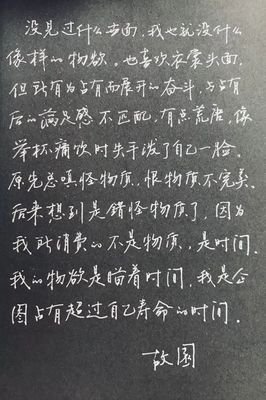 没见过什么世面，我也就没什么
像样的物欲。也喜欢衣裳头面，
但所有为占有而展开的奋斗，与占有
后的满足感不匹配，有点荒唐，像
举杯痛饮时失手泼了自己一脸。
原先总嗔怪物质，恨物质不完美。
后来想到是错怪物质了，因为
我所消费的不是物质，是时间。
我的物欲是瞄着时间，我是企
图占有超过自己寿命的时间。
故园